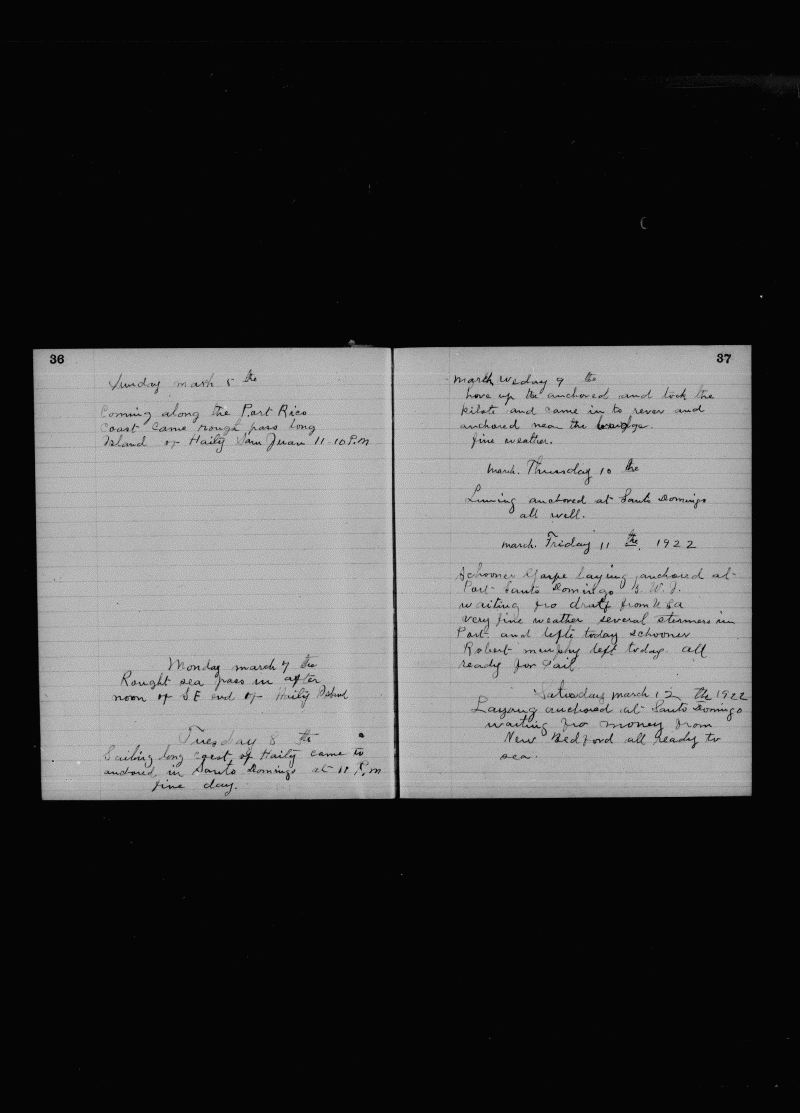 36
Sunday marh 5 the
Coming along the Port Rico
Coast Came rough pass long
Island of Haily San Juan 11-10 P.m
Monday march 7 the
Rought sea pass in after
noon of S E end of Haily Island
Tuesday 8 the
Sailing long coast of Haily came to
anchored in Santo Domingo at 11 P.m
fine day.
37
march weday 9 the
hove up the anchored and took the
pilots and came in to rever and
anchored near the
fine weather.
march. Thursday 10 the
anchored at Santo Domingo
all well.
march. Friday 11 the. 1922
Schooner laying anchored at
Port Santo Domingo
waiting fro draft from U Sa
very fine weather several stermers in
Port and lefte today schooner
Robert murphy left today all
ready for Sail
Saturday march 12 the 1922
Layang anchored at Santo Domingo
waiting fro money from
New Bedford all ready to
sea.